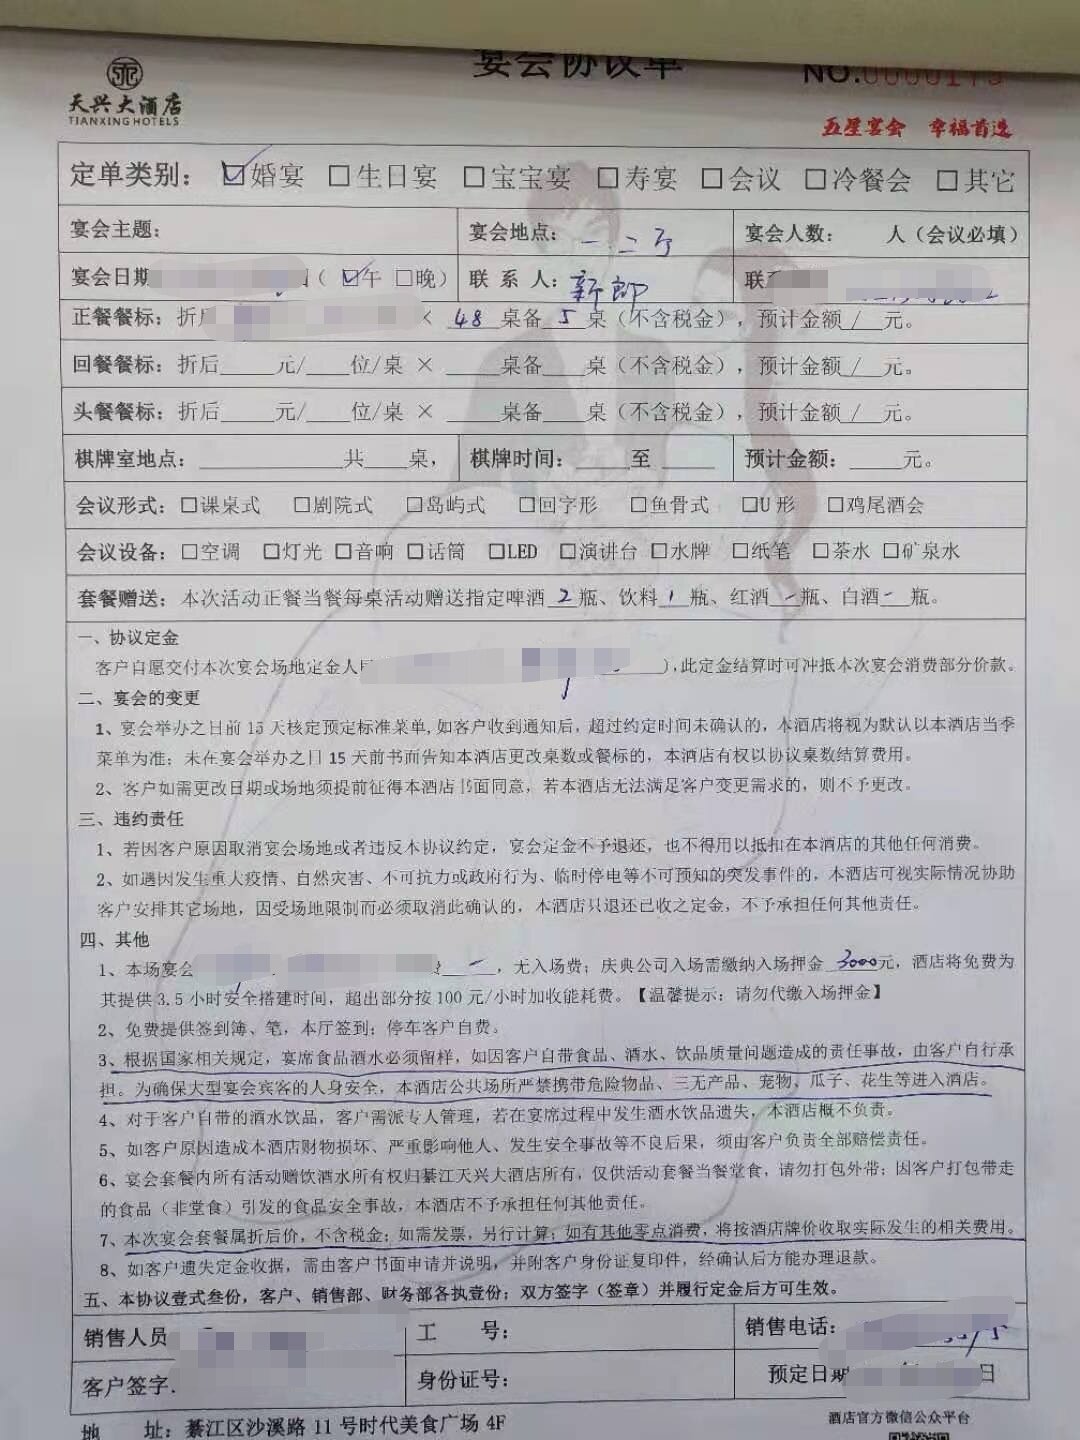 宴会协议单
NO.0000175
天兴大酒店
TIANXING HOTELS
五星宴会 幸福首选
定单类别： ☑婚宴 □生日宴 □宝宝宴 □寿宴 □会议 □冷餐会 □其它
宴会主题： 宴会地点：一.二厅 宴会人数： 人（会议必填）
宴会日期 （☑午 □晚） 联系人：新郎 联系
正餐餐标：折后 × 48 桌备 5 桌（不含税金），预计金额 / 元。
回餐餐标：折后____元/____位/桌 × ____桌备____桌（不含税金），预计金额 / 元。
头餐餐标：折后____元/____位/桌 × ____桌备____桌（不含税金），预计金额 / 元。
棋牌室地点：____________共____桌， 棋牌时间：____至____ 预计金额：____元。
会议形式：□课桌式 □剧院式 □岛屿式 □回字形 □鱼骨式 □U形 □鸡尾酒会
会议设备：□空调 □灯光 □音响 □话筒 □LED □演讲台 □水牌 □纸笔 □茶水 □矿泉水
套餐赠送：本次活动正餐当餐每桌活动赠送指定啤酒 2 瓶、饮料 1 瓶、红酒 - 瓶、白酒 - 瓶。
一、协议定金
客户自愿交付本次宴会场地定金人民 ），此定金结算时可冲抵本次宴会消费部分价款。
二、宴会的变更
1、宴会举办之日前 15 天核定预定标准菜单，如客户收到通知后，超过约定时间未确认的，本酒店将视为默认以本酒店当季
菜单为准；未在宴会举办之日 15 天前书面告知本酒店更改桌数或餐标的，本酒店有权以协议桌数结算费用。
2、客户如需更改日期或场地须提前征得本酒店书面同意，若本酒店无法满足客户变更需求的，则不予更改。
三、违约责任
1、若因客户原因取消宴会场地或者违反本协议约定，宴会定金不予退还，也不得用以抵扣在本酒店的其他任何消费。
2、如遇因发生重大疫情、自然灾害、不可抗力或政府行为、临时停电等不可预知的突发事件的，本酒店可视实际情况协助
客户安排其它场地，因受场地限制而必须取消此确认的，本酒店只退还已收之定金，不予承担任何其他责任。
四、其他
1、本场宴会 费 - ，无入场费；庆典公司入场需缴纳入场押金 3000 元，酒店将免费为
其提供 3.5 小时安全搭建时间，超出部分按 100 元/小时加收能耗费。【温馨提示：请勿代缴入场押金】
2、免费提供签到簿、笔，本厅签到；停车客户自费。
3、根据国家相关规定，宴席食品酒水必须留样，如因客户自带食品、酒水、饮品质量问题造成的责任事故，由客户自行承
担。为确保大型宴会宾客的人身安全，本酒店公共场所严禁携带危险物品、三无产品、宠物、瓜子、花生等进入酒店。
4、对于客户自带的酒水饮品，客户需派专人管理，若在宴席过程中发生酒水饮品遗失，本酒店概不负责。
5、如客户原因造成本酒店财物损坏、严重影响他人、发生安全事故等不良后果，须由客户负责全部赔偿责任。
6、宴会套餐内所有活动赠饮酒水所有权归綦江天兴大酒店所有，仅供活动套餐当餐堂食，请勿打包外带；因客户打包带走
的食品（非堂食）引发的食品安全事故，本酒店不予承担任何其他责任。
7、本次宴会套餐属折后价，不含税金；如需发票，另行计算；如有其他零点消费，将按酒店牌价收取实际发生的相关费用。
8、如客户遗失定金收据，需由客户书面申请并说明，并附客户身份证复印件，经确认后方能办理退款。
五、本协议壹式叁份，客户、销售部、财务部各执壹份；双方签字（签章）并履行定金后方可生效。
销售人员 工 号： 销售电话：
客户签字 身份证号： 预定日期 日
地 址：綦江区沙溪路 11 号时代美食广场 4F
酒店官方微信公众平台